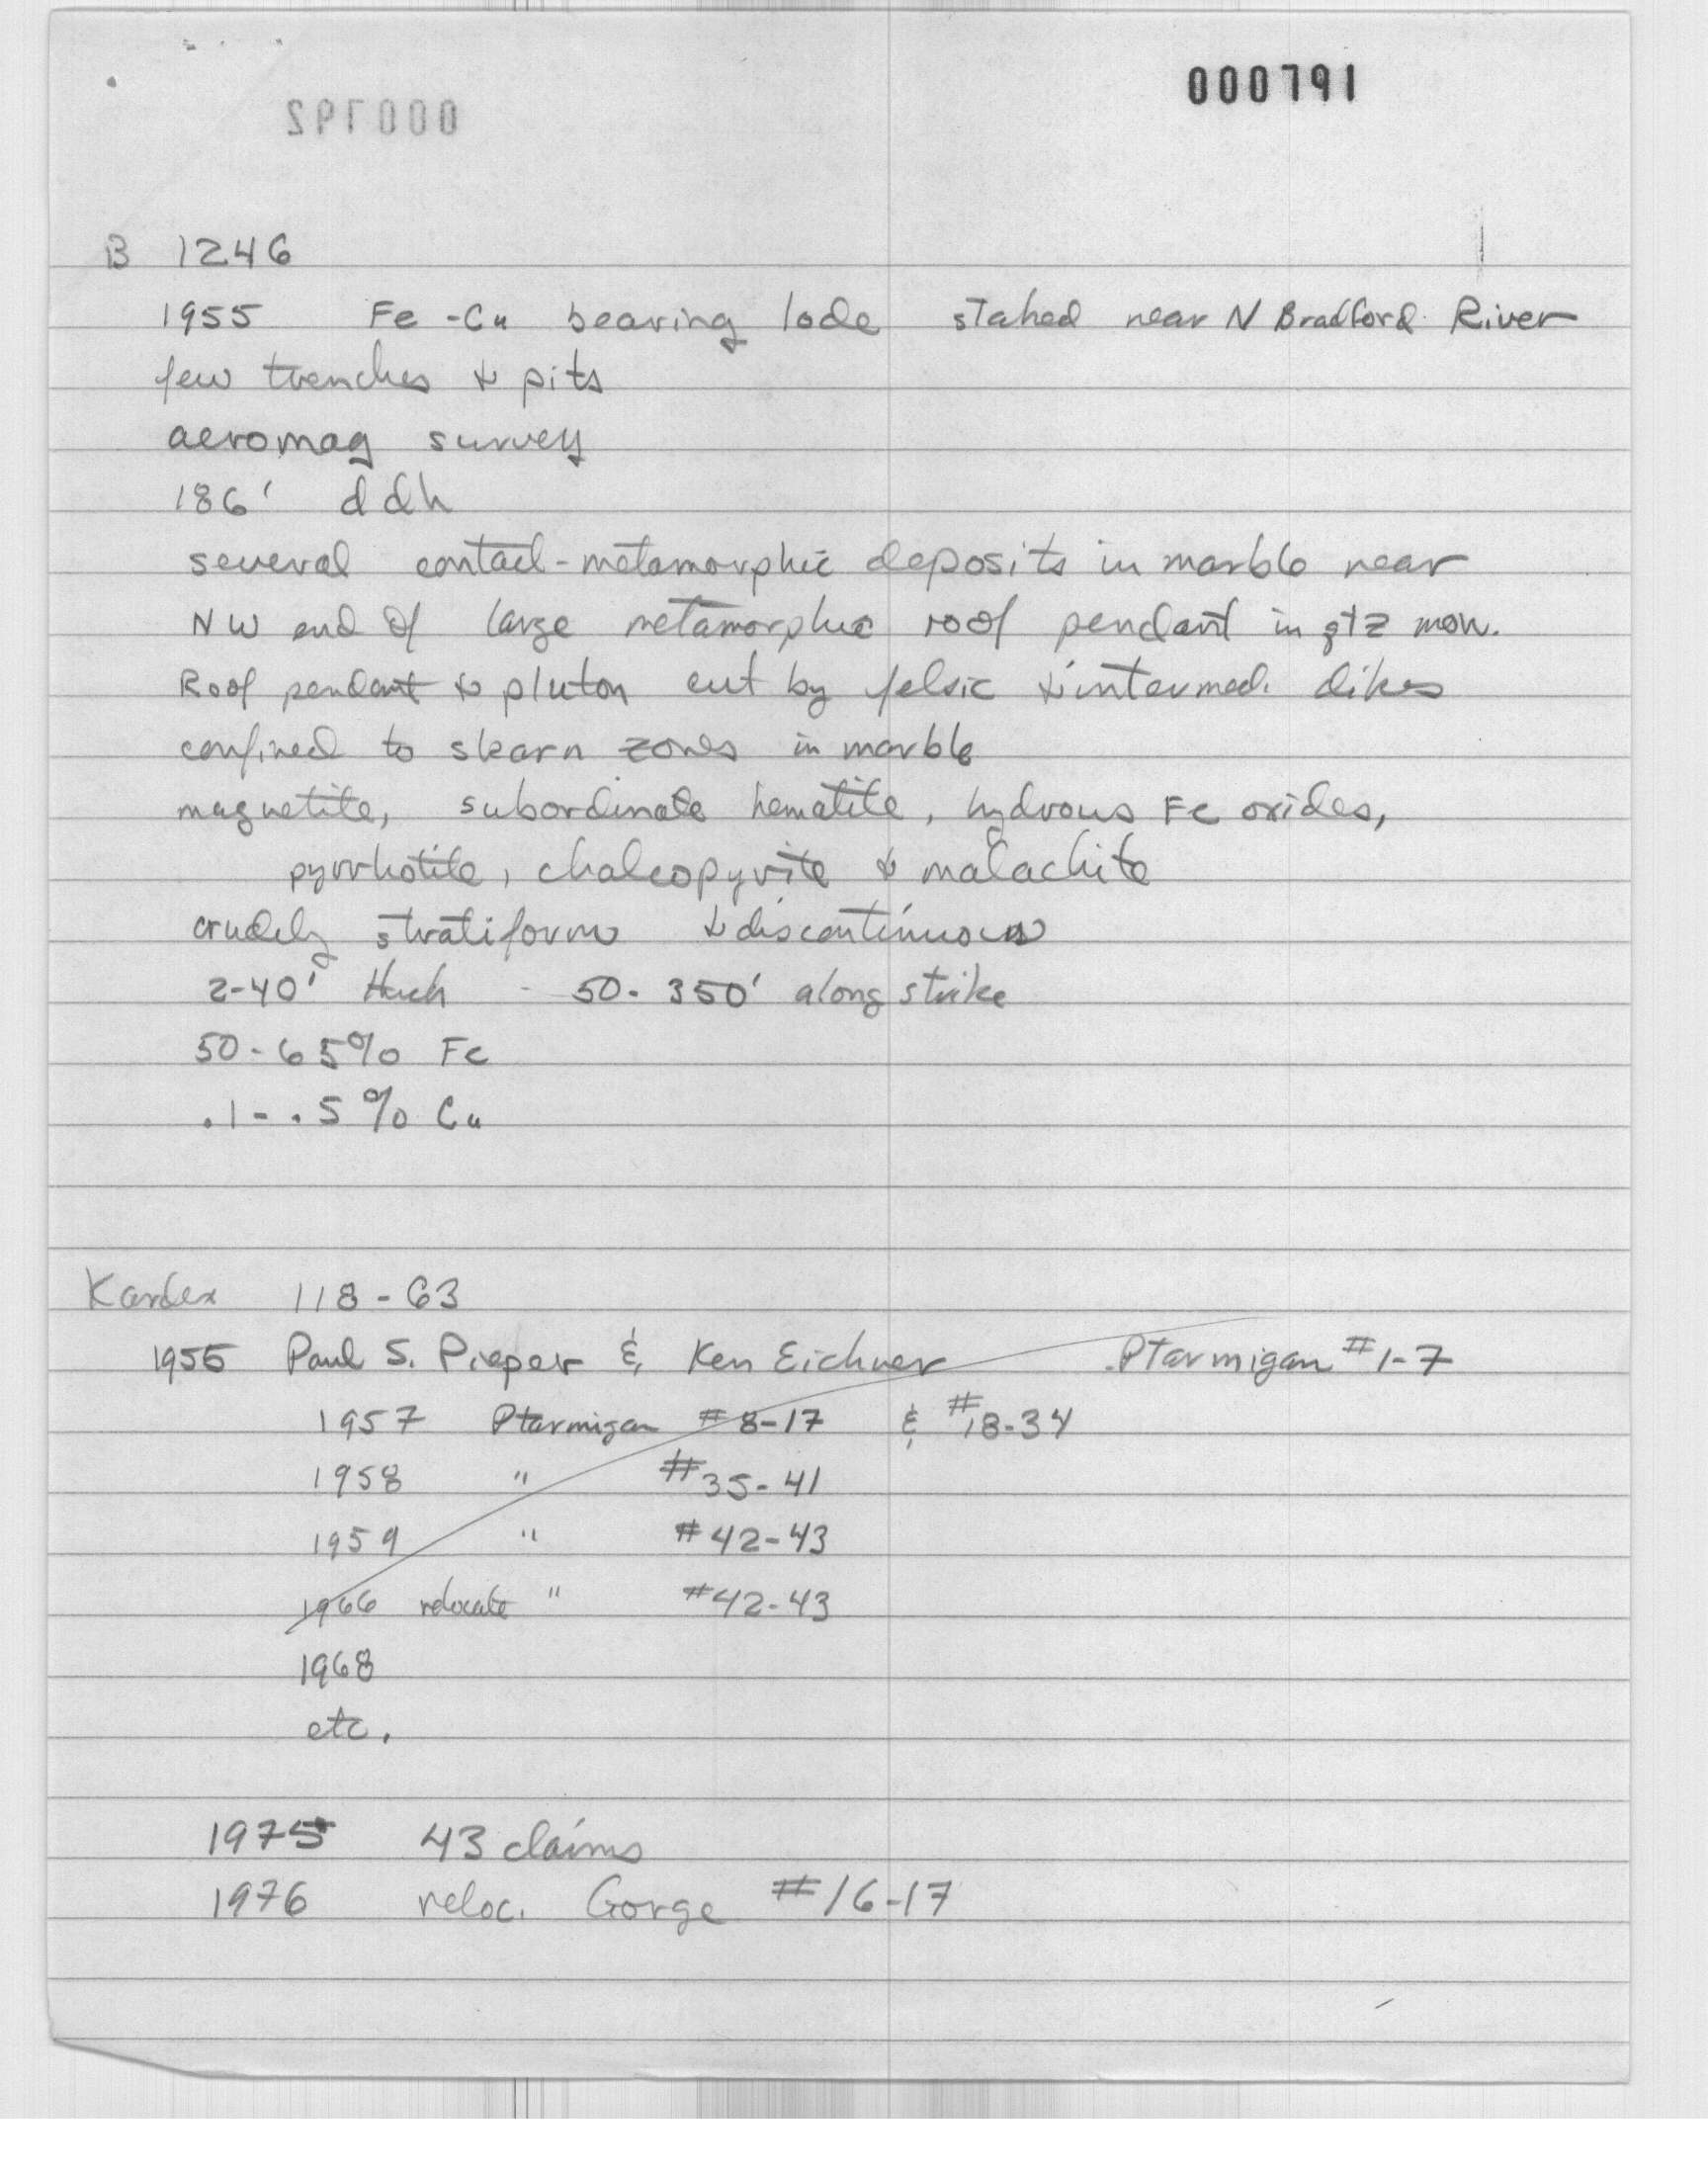 000791
000792
B 1246
1955 Fe-Cu bearing lode staked near N Bradford River
few trenches & pits
aeromag survey
186' ddh
several contact-metamorphic deposits in marble near
NW end of large metamorphic roof pendant in qtz mon.
Roof pendant & pluton cut by felsic & intermed. dikes
confined to skarn zones in marble
magnetite, subordinate hematite, hydrous Fe oxides,
pyrrhotite, chalcopyrite & malachite
crudely stratiform & discontinuous
2-40' thick - 50-350' along strike
50-65% Fe
.1-.5% Cu
Kardex 118-63
1955 Paul S. Pieper & Ken Eichner Ptarmigan #1-7
1957 Ptarmigan #8-17 & #18-34
1958 " #35-41
1959 " #42-43
1966 relocate " #42-43
1968
etc.
1975 43 claims
1976 reloc. Gorge #16-17